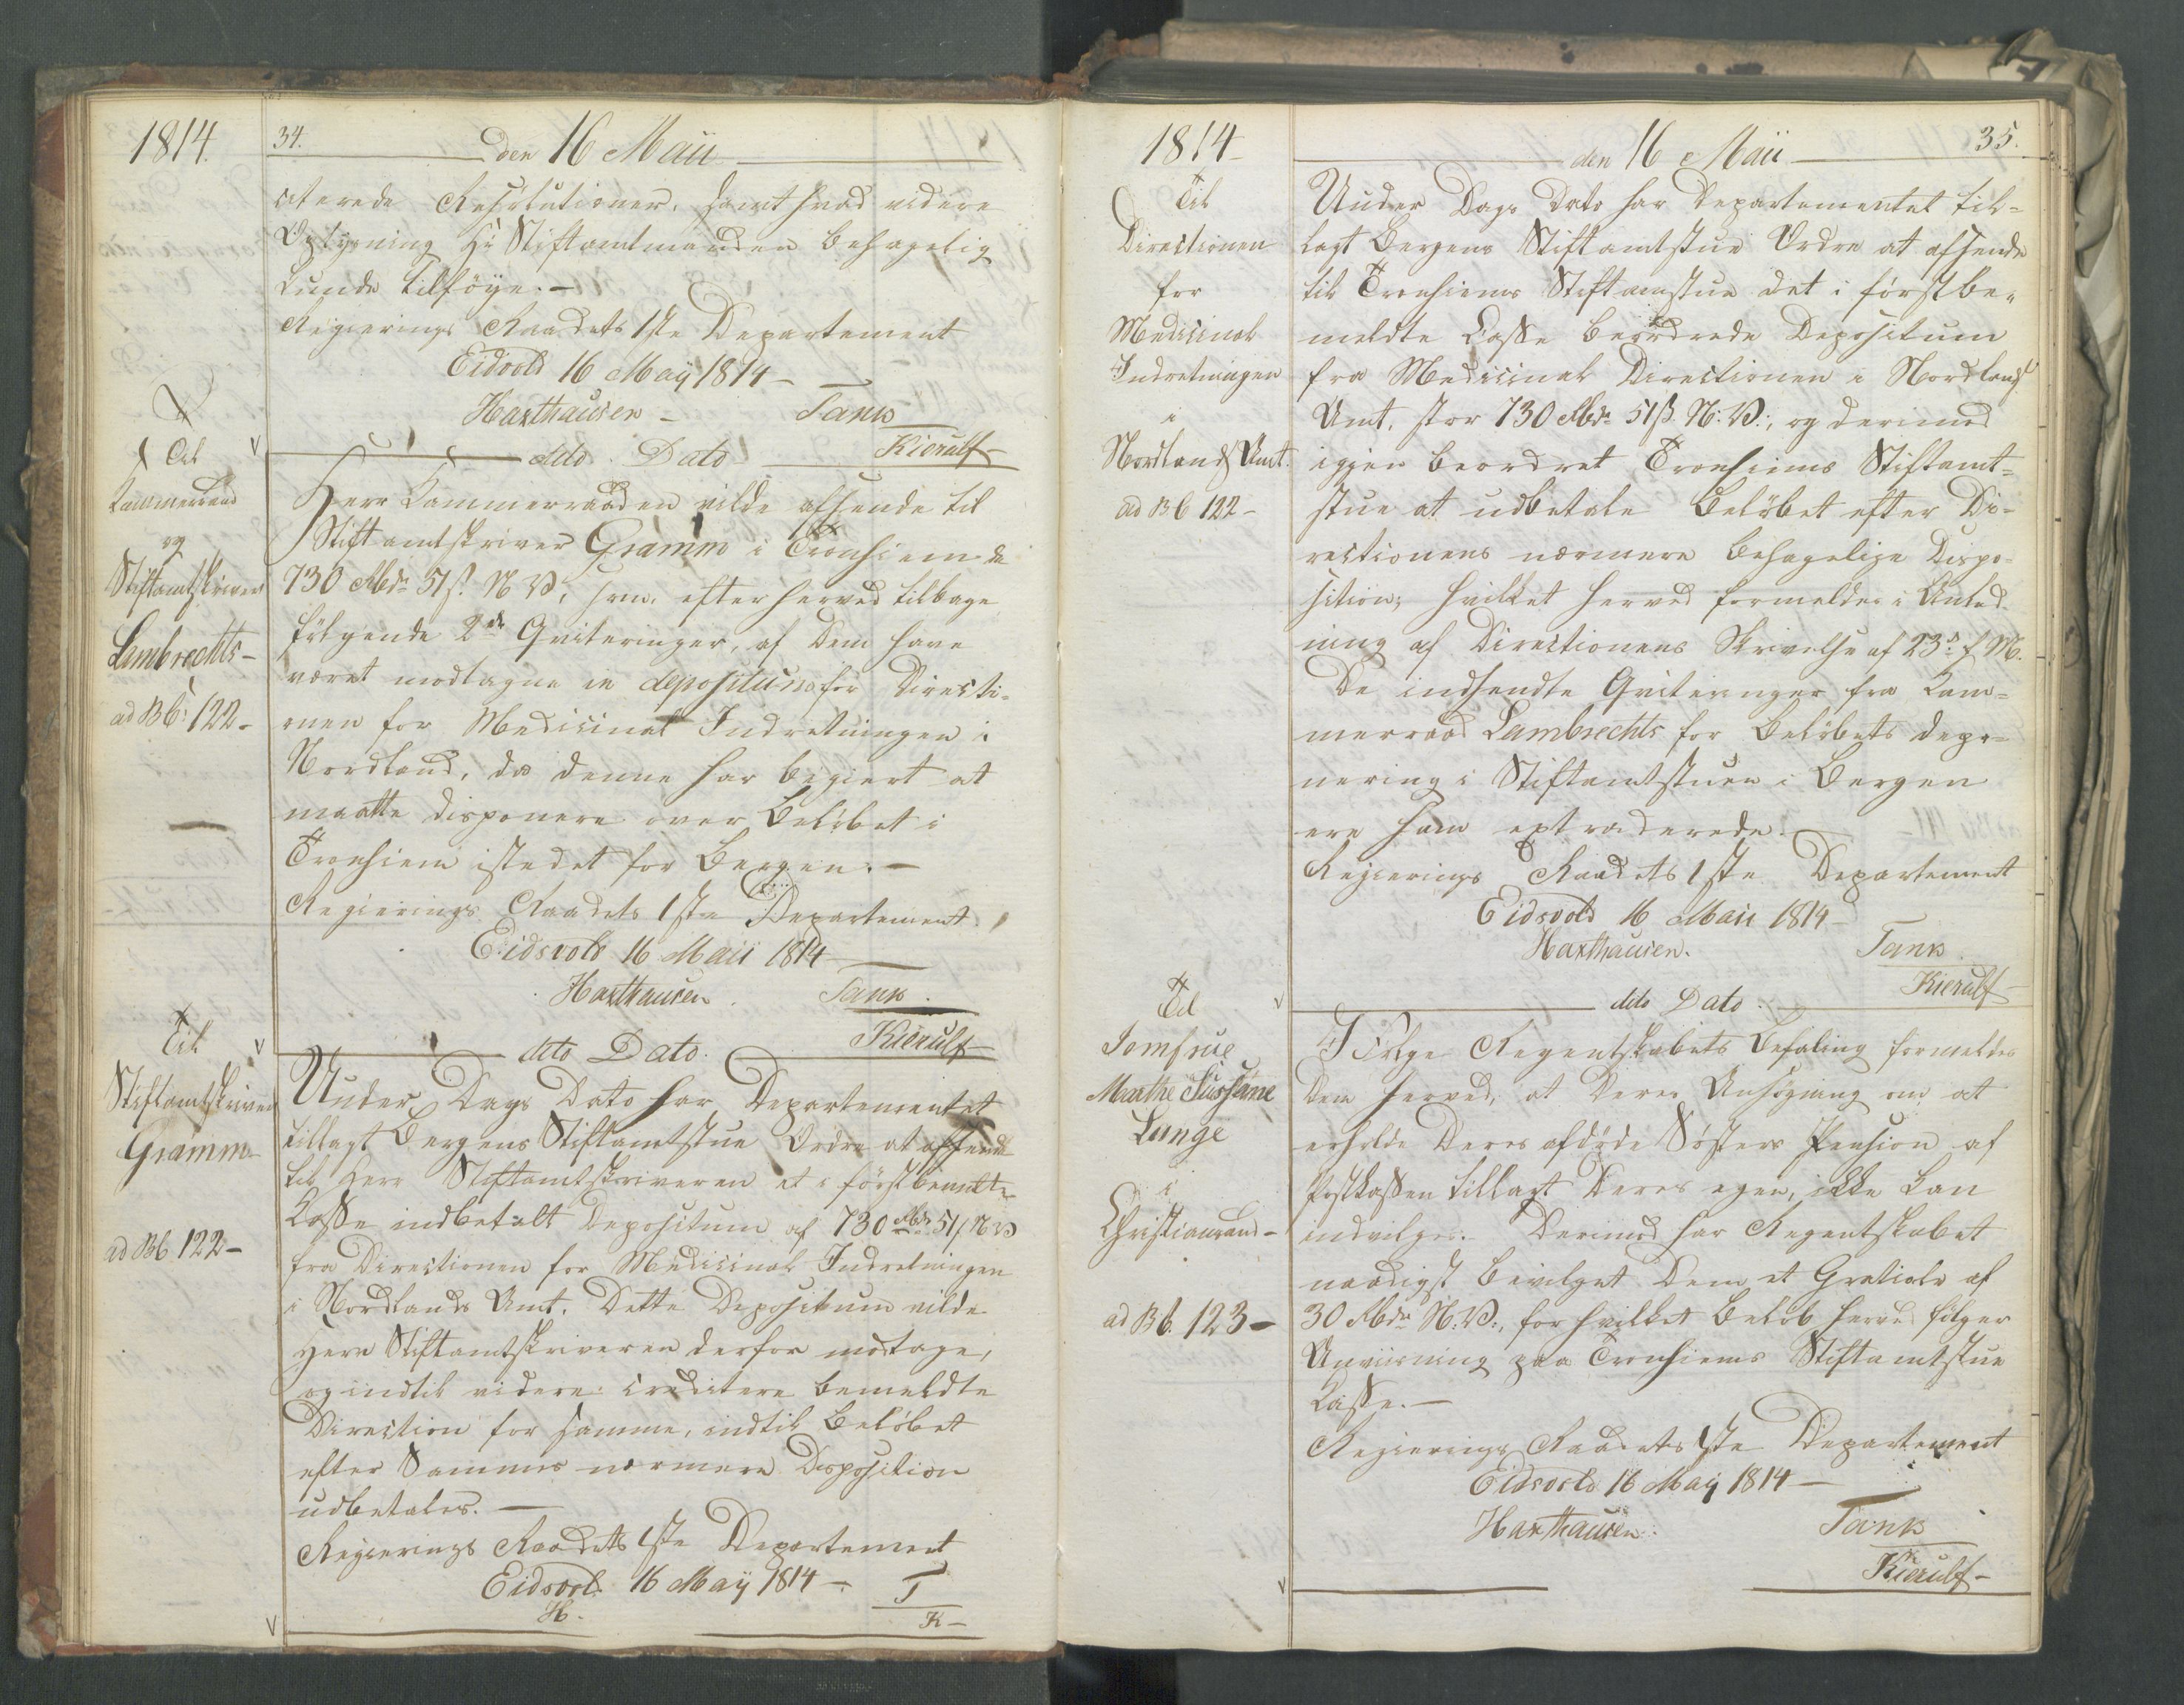 1814.
34.
den 16 Maii
citerede Resolutioner, samt hvad videre
Oplysning Hr Stiftamtmanden behagelig
kunde tilføye. –
Regierings Raadets 1ste Departement
Eidsvold 16 Maij 1814 –
Haxthausen – Tank
Kierulf
Til
Kammerraad
og
Stiftamtskriver
Lambrechts –
ad B 6: 122 –
dito Dato
Herr Kammerraaden vilde afsende til
Stiftamtskriver Gramm i Tronhiem de
730 Rbdr 51 ß. N. V., som, efter herved tilbage
følgende 2de Qviteringer, af Dem have
været modtagne in depositum for Directi-
onen for Medicinal Indretningen i
Nordland, da denne har begiert at
maatte disponere over Beløbet i
Tronhiem istedet for Bergen. –
Regierings Raadets 1ste Departement,
Eidsvold 16 Maii 1814
Haxthausen. Tank.
Kierulf
Til
Stiftamtskriver
Gramm
ad B 6 122 –
dito Dato.
Under Dags Dato har Departementet
tillagt Bergens Stiftamtstue Ordre at afsende
til Herr Stiftamtskriveren et i førstbemeldte
Casse indbetalt Depositum af 730 Rbdr 51 ß N V
fra Directionen for Medicinal Indretningen
i Nordlands Amt. Dette Depositum vilde
Herr Stiftamtskriveren derfor modtage,
og indtil videre creditere bemeldte
Direction for samme, indtil Beløbet
efter Sammes nærmere Disposition
udbetales. –
Regierings Raadets 1ste Departement
Eidsvold 16 Maij 1814 –
H. T
K –
1814
35.
den 16 Maii
Til
Directionen
for
Medicinal
Indretningen
i
Nordlands Amt.
ad B 6 122 –
Under Dags Dato har Departementet til-
lagt Bergens Stiftamtstue Ordre at afsende
til Tronhiems Stiftamtstue det i førstbe-
meldte Casse beordrede Depositum
fra Medicinal Directionen i Nordlands
Amt, stor 730 Rbdr 51 ß N: V:, og derimod
igjen beordret Tronhiems Stiftamt-
stue at udbetale Beløbet efter Di-
rectionens nærmere behagelige Dispo-
sition; hvilket herved formeldes i Anled-
ning af Directionens Skrivelse af 23de f. M.
De indsendte Qviteringer fra Kam-
merraad Lambrechts for Beløbets depo-
nering i Stiftamtstuen i Bergen
ere ham extraderede.
Regierings Raadets 1ste Departement
Eidsvold 16 Maii 1814 –
Haxthausen. Tank.
Kierulf
Til
Jomfrue
Marthe Sussane
Lunge
i
Christiansand –
ad B 6. 123 –
dito Dato.
I Følge Regentskabets Befaling formeldes
Dem herved, at Deres Ansøgning om at
erholde Deres afdøde Søsters Pension af
Postkassen tillagt Deres egen, ikke kan
indvilges. – Dermod har Regentskabet
naadigst bevilget Dem et Gratiale af
30 Rbdr N: V:, for hvilket Beløb herved følger
Anviisning paa Tronhiems Stiftamtstue
Casse. –
Regierings Raadets 1ste Departement
Eidsvold 16 Maij 1814 –
Haxthausen. Tank
Kierulf –